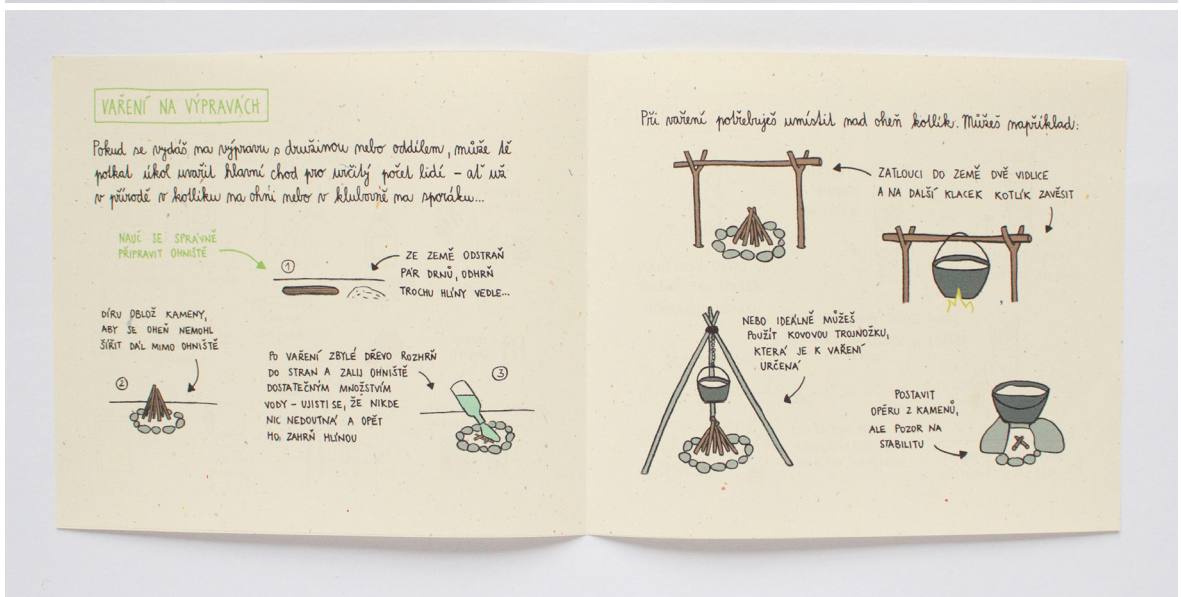 VAŘENÍ NA VÝPRAVÁCH
Pokud se vydáš na výpravu s družinou nebo oddílem, může tě
potkat úkol uvařit hlavní chod pro určitý počet lidí – ať už
v přírodě v kotlíku na ohni nebo v klubovně na sporáku...
NAUČ SE SPRÁVNĚ
PŘIPRAVIT OHNIŠTĚ
1
ZE ZEMĚ ODSTRAŇ
PÁR DRNŮ, ODHRŇ
TROCHU HLÍNY VEDLE...
DÍRU OBLOŽ KAMENY,
ABY SE OHEŇ NEMOHL
ŠÍŘIT DÁL MIMO OHNIŠTĚ
2
PO VAŘENÍ ZBYLÉ DŘEVO ROZHRŇ
DO STRAN A ZALIJ OHNIŠTĚ
DOSTATEČNÝM MNOŽSTVÍM
VODY – UJISTI SE, ŽE NIKDE
NIC NEDOUTNÁ A OPĚT
HO ZAHRŇ HLÍNOU
3
Při vaření potřebuješ umístit nad oheň kotlík. Můžeš například:
ZATLOUCI DO ZEMĚ DVĚ VIDLICE
A NA DALŠÍ KLACEK KOTLÍK ZAVĚSIT
NEBO IDEÁLNĚ MŮŽEŠ
POUŽÍT KOVOVOU TROJNOŽKU,
KTERÁ JE K VAŘENÍ
URČENÁ
POSTAVIT
OPĚRU Z KAMENŮ,
ALE POZOR NA
STABILITU